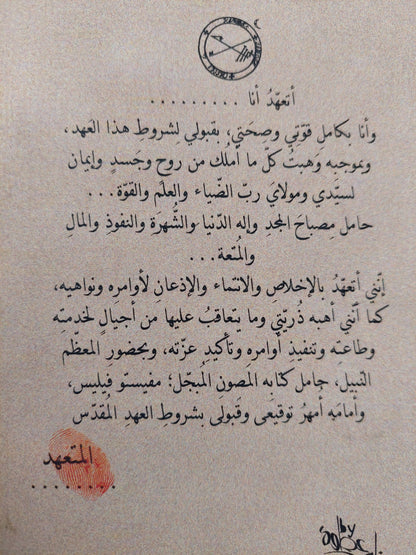 أتعهّدُ أنا . . . . . . . . .
وأنا بكامل قوّتي وصِحَتي، بقبولي لِشروطِ هذا العَهد،
وبموجبِه وَهبتُ كلَّ ما أملُك من روحٍ وجَسدٍ وإيمان
لسيّدي ومولايَ ربّ الضّياء والعلم والقوّة. . .
حامل مِصباحَ المجدِ وإله الدّنيا والشُّهرة والنفوذِ والمالِ
والمُتعة. . .
إنّني أتعهّدُ بالإخلاصِ والانتماء والإذعانِ لأوامرِه ونواهيه،
كما أنّني أهبه ذُريّتي وما يتعاقبُ عليها من أجيالٍ لخدمتِه
وطاعتِه وتنفيذِ أوامرِه وتأكيدِ عزّته، وبحضورِ المعظّم
النّبيل، حامل كتابِه المصونِ المُبجّل؛ مفيستو فيليس،
وأمامَه أمهرُ توقيعى وقبولى بشروطِ العهدِ المُقدّس
المتعهد
. . . . . . . .
by